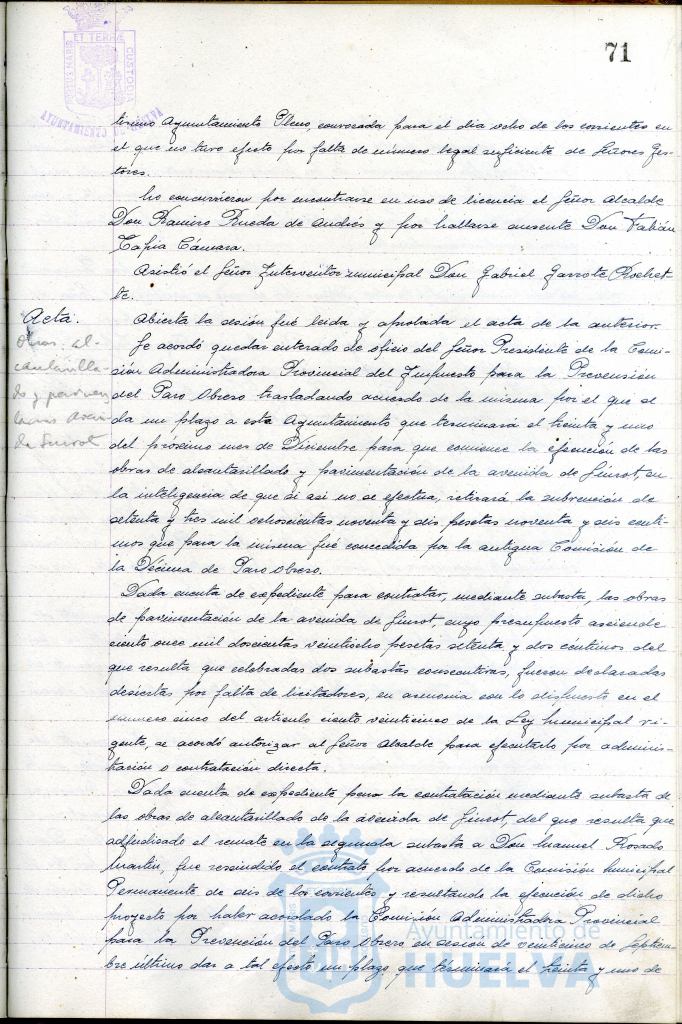 71
PORTUS MARIS ET TERRAE CUSTODIA
AYUNTAMIENTO DE HUELVA
tísimo Ayuntamiento Pleno, convocada para el dia ocho de los corrientes en
el que no tuvo efecto por falta de número legal suficiente de Señores Ges-
tores.
No concurrieron por encontrarse en uso de licencia el Señor Alcalde
Don Ramiro Rueda de Andrés y por hallarse ausente Don Fabián
Tapia Cámara.
Asistió el Señor Interventor municipal Don Gabriel Garrote Rochet-
te.
Acta.
Abierta la sesión fué leida y aprobada el acta de la anterior.
Obras al-
cantarilla-
do y pavimen
Se acordó quedar enterado de oficio del Señor Presidente de la Comi-
sión Administradora Provincial del Impuesto para la Prevensión
del Paro Obrero trasladando acuerdo de la misma por el que se
da un plazo a este Ayuntamiento que terminará el treinta y uno
del próximo mes de Diciembre para que comience la ejecución de las
obras de alcantarillado y pavimentación de la avenida de Siurot, en
la inteligencia de que si asi no se efectua, retirará la subvención de
setenta y tres mil ochocientas noventa y seis pesetas noventa y seis centi-
mos que para la misma fué concedida por la antigua Comisión de
la Décima de Paro Obrero.
Dada cuenta de expediente para contratar, mediante subasta, las obras
de pavimentación de la avenida de Siurot, cuyo presupuesto asciende
ciento once mil doscientas veintiocho pesetas setenta y dos céntimos del
que resulta que celebradas dos subastas consecutivas, fueron declaradas
desiertas por falta de licitadores, en armonia con lo dispuesto en el
número cinco del articulo ciento veinticinco de la Ley municipal vi-
gente, se acordó autorizar al Señor Alcalde para ejecutarlo por adminis-
tración o contratación directa.
Dada cuenta de expediente para la contratación mediante subasta de
las obras de alcantarillado de la avenida de Siurot, del que resulta que
adjudicado el remate en la segunda subasta a Don Manuel Rosado
Martin, fué rescindido el contrato por acuerdo de la Comisión municipal
Permanente de seis de los corrientes y resultando la ejecución de dicho
proyecto por haber acordado la Comisión Administradora Provincial
para la Prevención del Paro Obrero en sesión de veinticinco de Septiem-
bre último dar a tal efecto un plazo que terminará el treinta y uno de
Ayuntamiento de
HUELVA